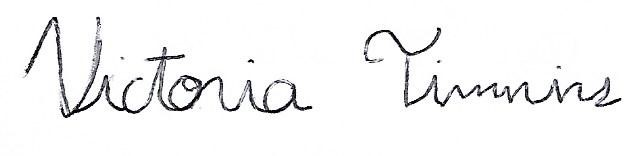 Victoria Timmins